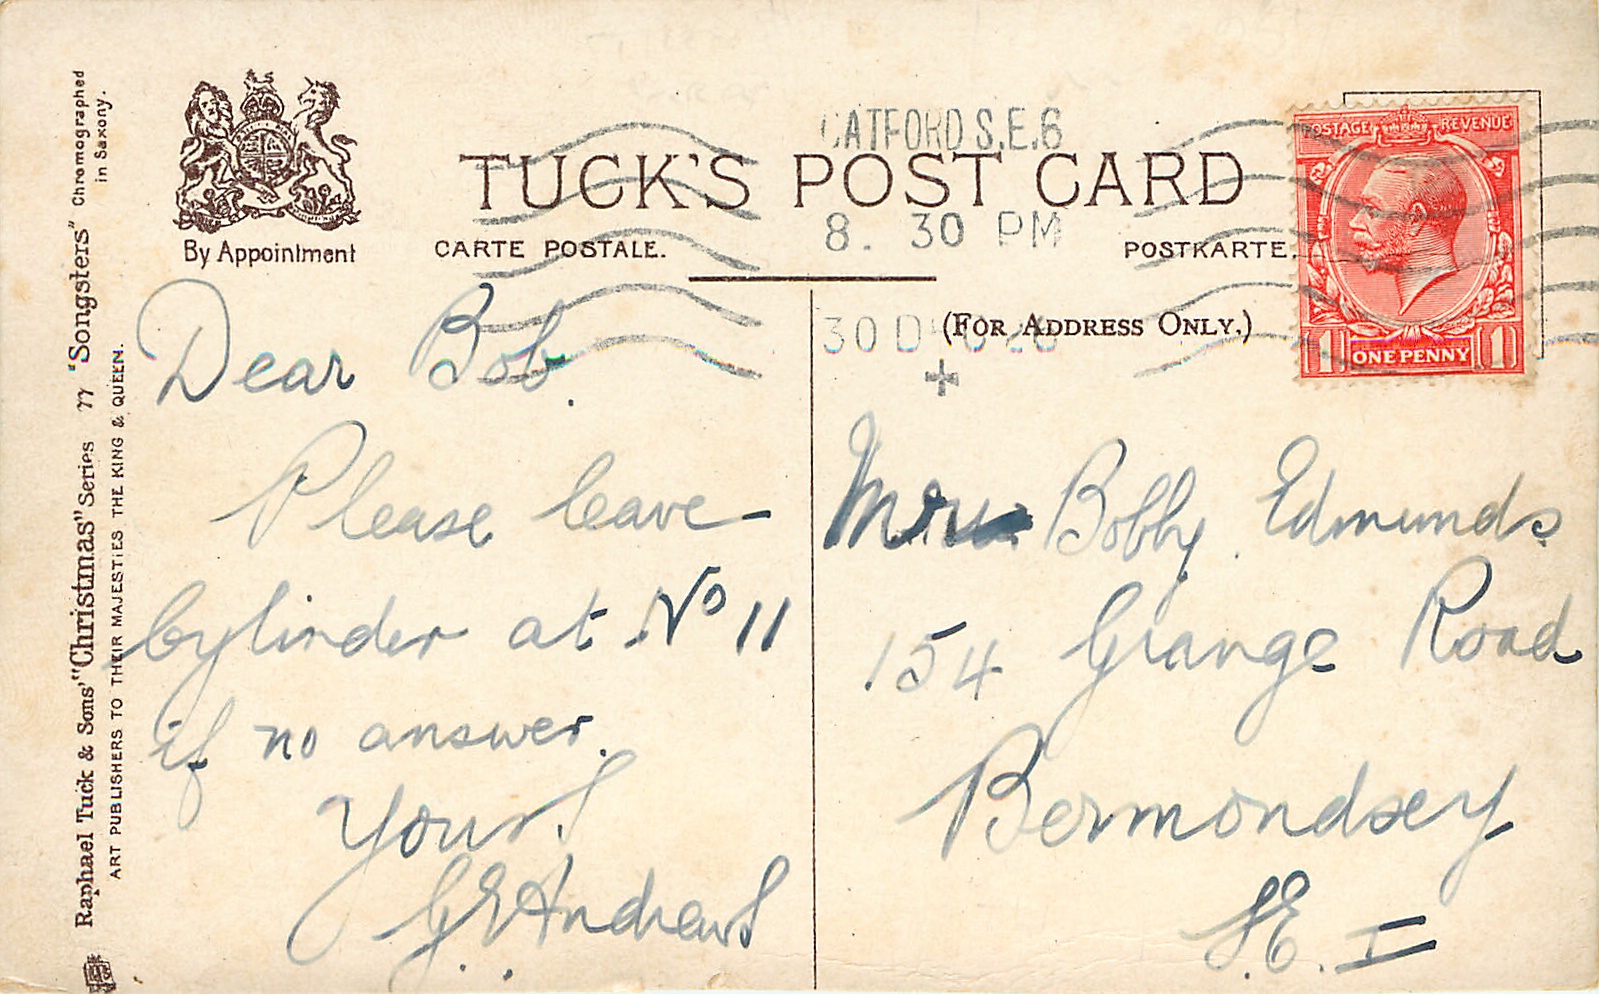 Raphael Tuck & Sons' "Christmas" Series 77 "Songsters" Chromographed
in Saxony.
ART PUBLISHERS TO THEIR MAJESTIES THE KING & QUEEN.
By Appointment
TUCK'S POST CARD
CARTE POSTALE.
POSTKARTE.
(FOR ADDRESS ONLY.)
CATFORD S.E.6
8. 30 PM
30 D
POSTAGE REVENUE
1 ONE PENNY 1
Dear Bob.
Please leave
Cylinder at No 11
if no answer.
Yours
G E Andrews
Bobby Edmunds
154 Grange Road
Bermondsey
S.E. I